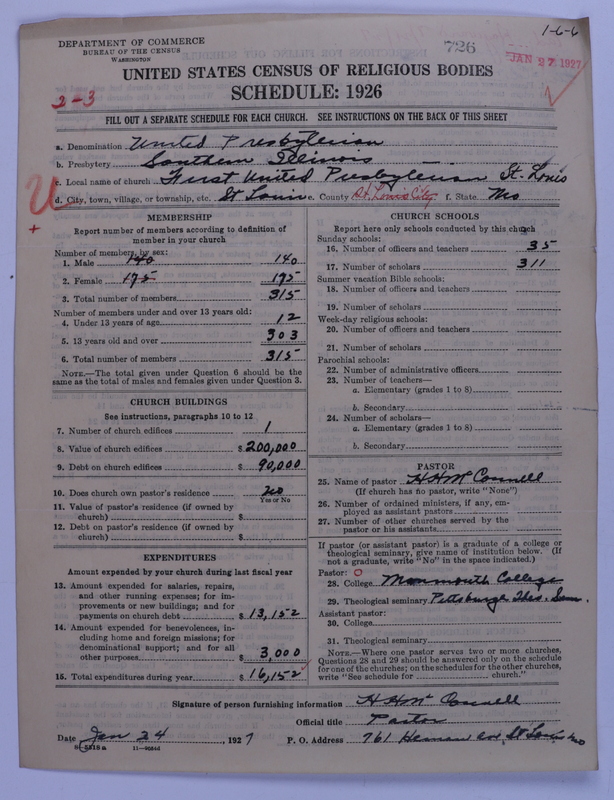 1-6-6
DEPARTMENT OF COMMERCE
BUREAU OF THE CENSUS
WASHINGTON
726
JAN 27 1927
UNITED STATES CENSUS OF RELIGIOUS BODIES
2-3
SCHEDULE: 1926
FILL OUT A SEPARATE SCHEDULE FOR EACH CHURCH. SEE INSTRUCTIONS ON THE BACK OF THIS SHEET
a. Denomination United Presbyterian
b. Presbytery Southern Illinois
c. Local name of church First United Presbyterian St. Louis
d. City, town, village, or township, etc. St Louis e. County St. Louis City f. State Mo
U
+
MEMBERSHIP
Report number of members according to definition of
member in your church
Number of members, by sex:
1. Male 140 140
2. Female 175 175
3. Total number of members 315
Number of members under and over 13 years old:
4. Under 13 years of age 12
5. 13 years old and over 303
6. Total number of members 315
NOTE.—The total given under Question 6 should be
same as the total of males and females given under Question 3.
CHURCH BUILDINGS
See instructions, paragraphs 10 to 12
7. Number of church edifices 1
8. Value of church edifices $ 200,000
9. Debt on church edifices $ 90,000
10. Does church own pastor's residence no
Yes or No
11. Value of pastor's residence (if owned by
church) $
12. Debt on pastor's residence (if owned by
church) $
EXPENDITURES
Amount expended by your church during last fiscal year
13. Amount expended for salaries, repairs,
and other running expenses; for im-
provements or new buildings; and for
payments on church debt $ 13,152
14. Amount expended for benevolences, in-
cluding home and foreign missions; for
denominational support; and for all
other purposes $ 3,000
15. Total expenditures during year $ 16,152
CHURCH SCHOOLS
Report here only schools conducted by this church
Sunday schools:
16. Number of officers and teachers 35
17. Number of scholars 311
Summer vacation Bible schools:
18. Number of officers and teachers
19. Number of scholars
Week-day religious schools:
20. Number of officers and teachers
21. Number of scholars
Parochial schools:
22. Number of administrative officers
23. Number of teachers—
a. Elementary (grades 1 to 8)
b. Secondary
24. Number of scholars—
a. Elementary (grades 1 to 8)
b. Secondary
PASTOR
25. Name of pastor H H McConnell
(If church has no pastor, write "None")
26. Number of ordained ministers, if any, em-
ployed as assistant pastors
27. Number of other churches served by the
pastor or his assistants
If pastor (or assistant pastor) is a graduate of a college or
theological seminary, give name of institution below. (If
not a graduate, write "No" in the space indicated.)
Pastor:
28. College Monmouth College
29. Theological seminary Pittsburgh Theo. Sem.
Assistant pastor:
30. College
31. Theological seminary
NOTE.—Where one pastor serves two or more churches,
Questions 28 and 29 should be answered only on the schedule
for one of the churches; on the schedules for the other churches,
write "See schedule for church."
Signature of person furnishing information H H McConnell
Official title Pastor
Date Jan 24, 1927 P. O. Address 761 Heman ave St Louis mo
8-5318a 11-9664d